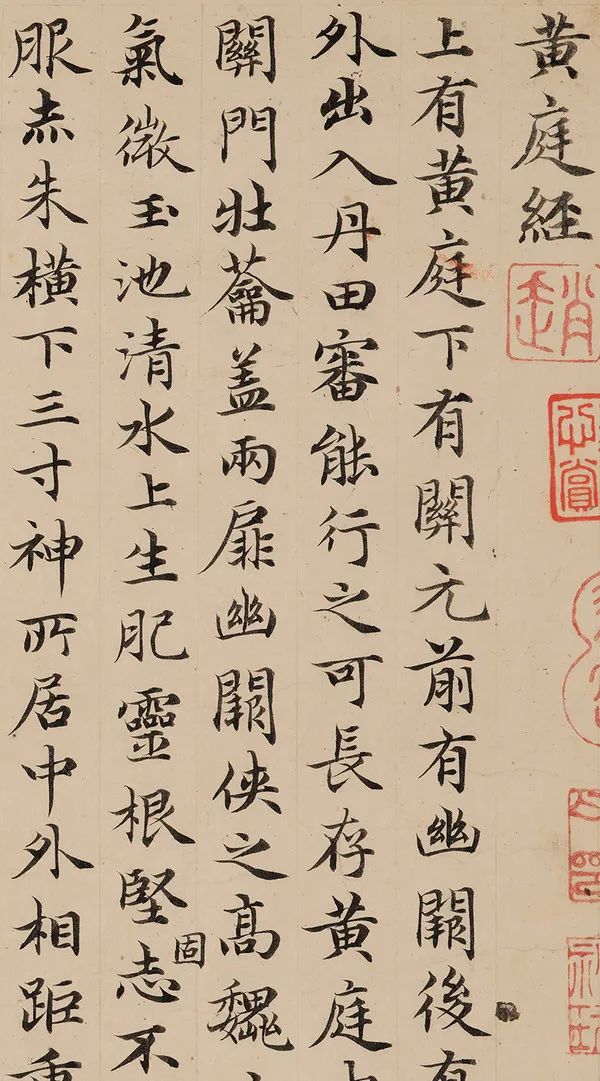 黄庭經
上有黄庭下有關元前有幽闕後有
外出入丹田審能行之可長存黄庭
關門壯蘥盖兩扉幽闕俠之高魏
氣微玉池清水上生肥靈根堅固志不
服赤朱橫下三寸神所居中外相距重
趙
心賞